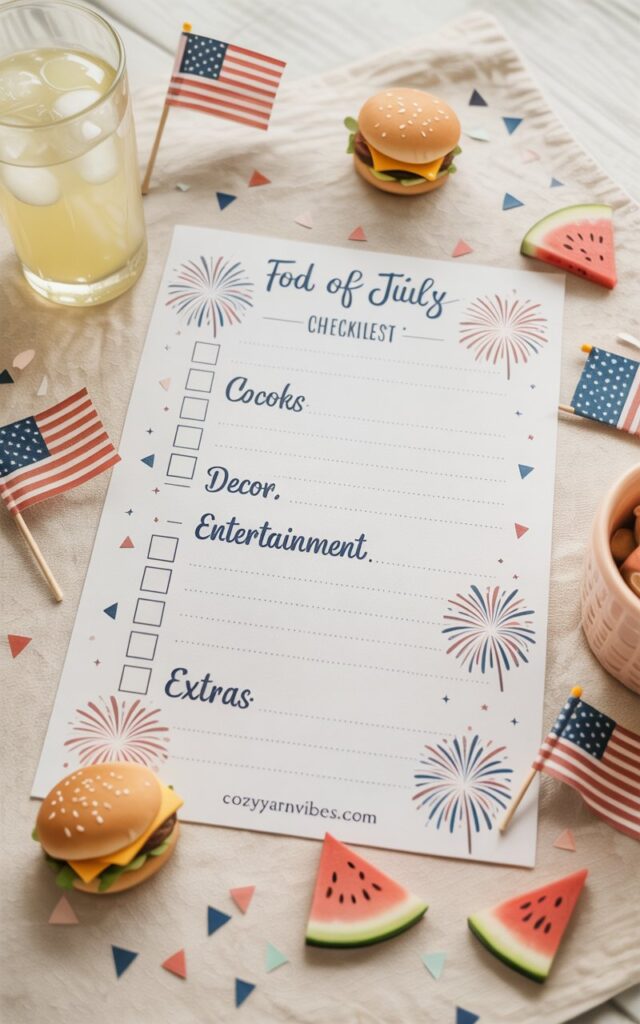 Fod of Jiily
CHECKILEST
Cocoks
Decor.
Entertainment
Extras
cozyyarnvibes.com